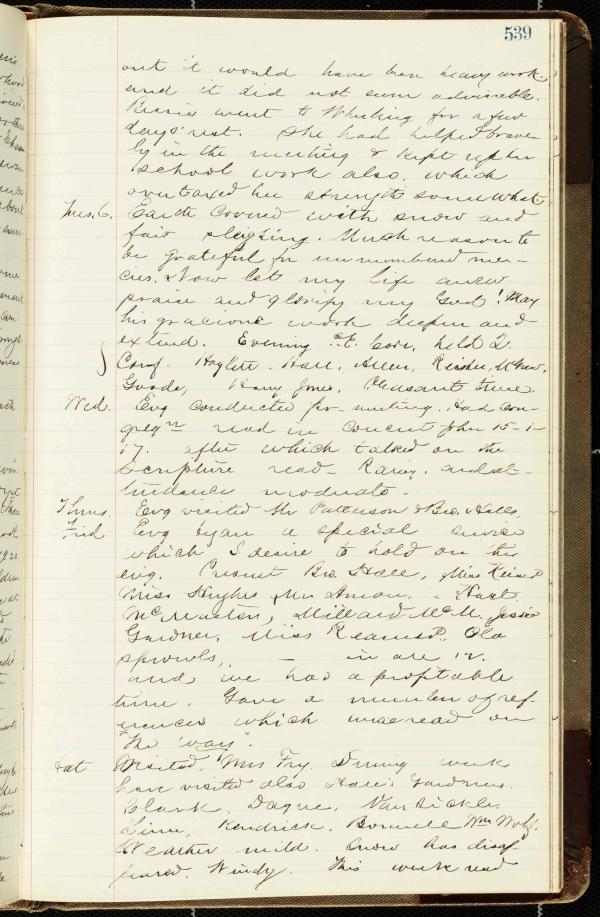 539
out it would have been heavy work.
and it did not seem advisable.
Bessie went to Wheeling for a few
days' rest. She had helped brave-
ly in the meeting & kept up her
school work also, which
overtaxed her strength somewhat.
Tues. 6. Earth covered with snow and
fair sleighing. Much reason to
be grateful for unnumbered mer-
cies. Now let my life anew
praise and glorify my God! May
his gracious work deepen and
extend. Evening held 2
Conf. Haylett. Hall, Allen, McGrew,
Goode, Harry Jones. Pleasant time.
Wed. Evg conducted pr- meeting. Had con-
greg'n read in concert John 15-1-
17. after which talked on the
Scripture read. Rainy. and at-
tendance moderate.
Thurs. Evg visited Mr Patterson & Bro. Hall,
Frid Evg began a special service
which I desire to hold on this
evg. Present Bro. Hall, Miss
Miss Hughes, Mrs " Hart
McMasters, Millard McM. Jessie
Gardner, Miss Ola
Sprowls, — in all 12.
and, we had a profitable
time. Gave a number of ref-
erences which were read on
"The way".
Sat Visited, Mrs Fry. During week
have visited also Hall's Gardners.
Clark. Dague, Van Sickle.
Linn, Kendrick. Bonnell Wm Wolf.
Weather mild. Snow has disap-
peared. Windy. This week read